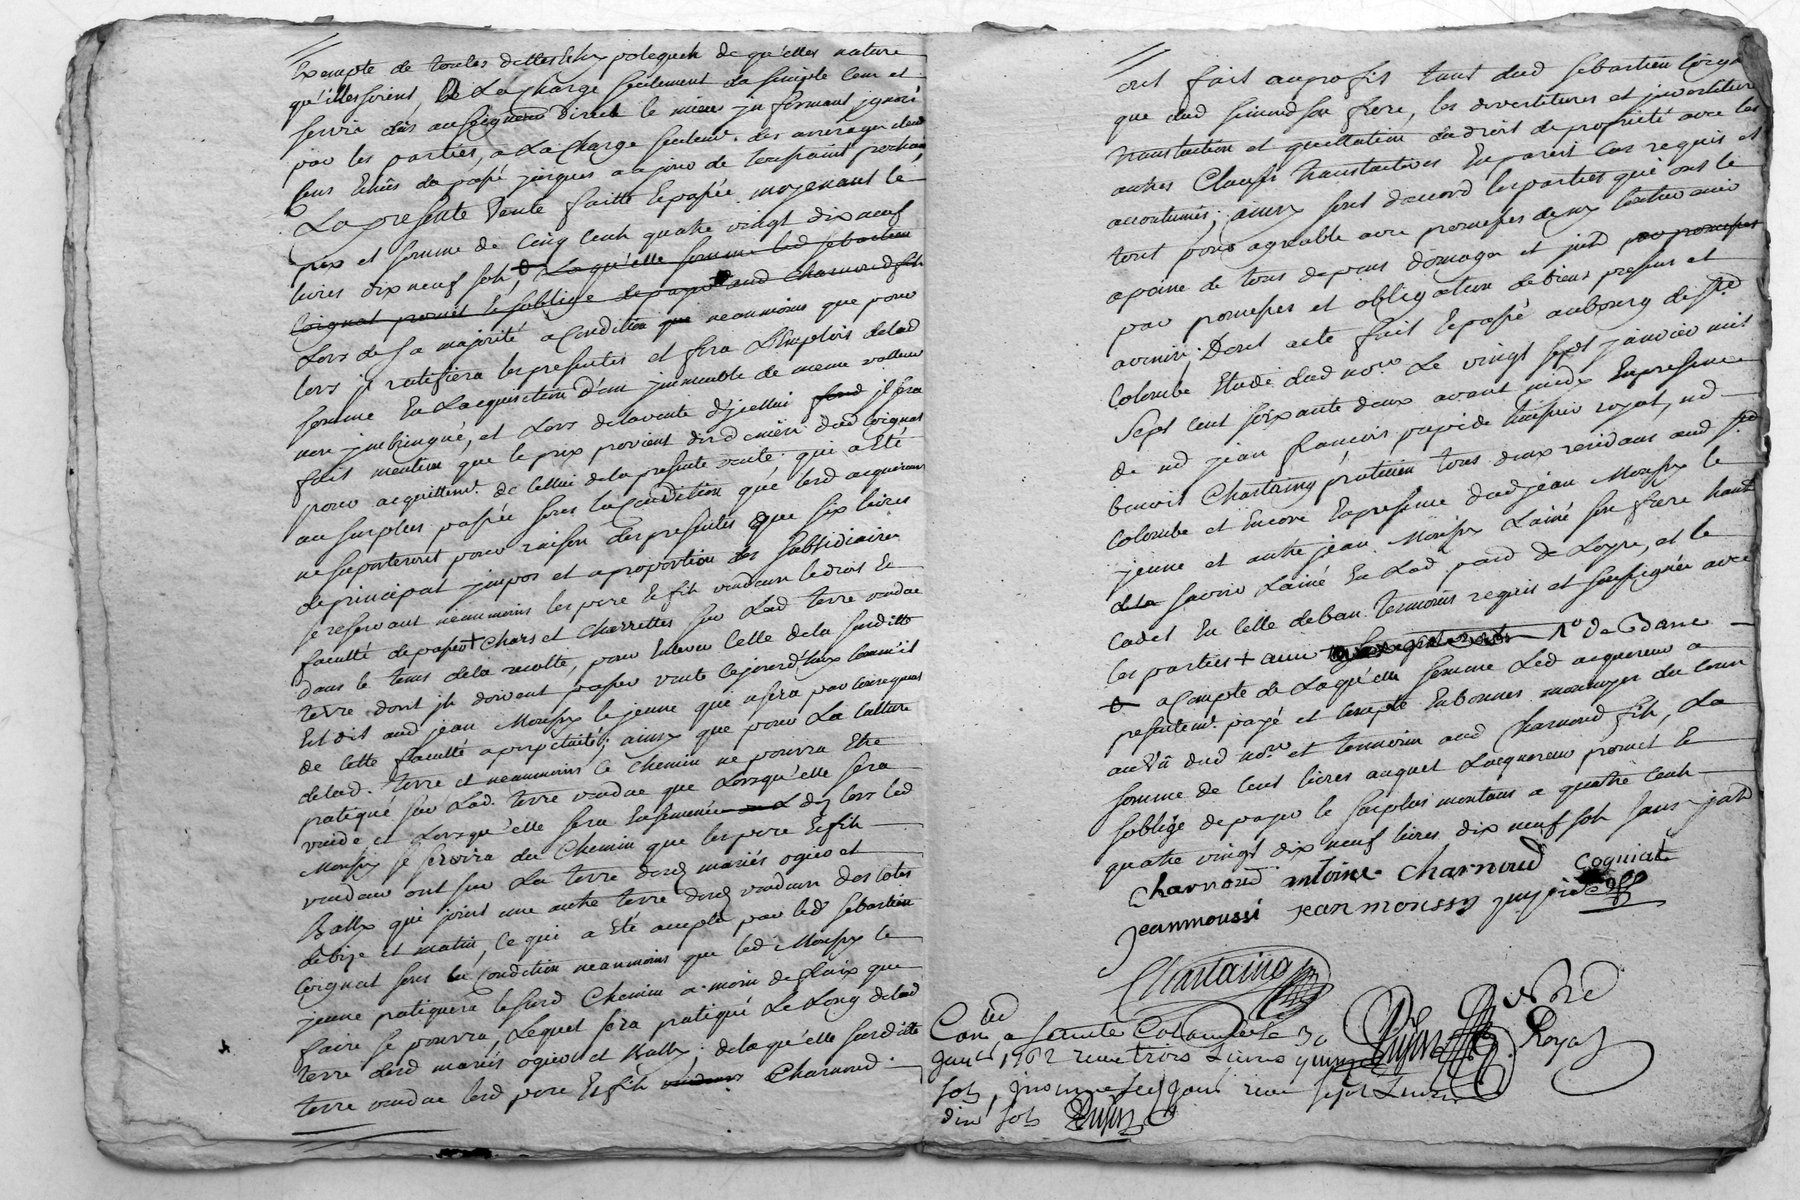 Exempte de toutes dettes et hypoteques de qu'elles nature
qu'elles soient, a La Charge seulement du simple Cens et
servis dus au seigneur Direct le mieux jn formant ignoré
par les parties, a La Charge seulemt. des arrerages dud
Cens Echûs du passé jusques au jour de toussaint prochain,
La presente Vente faitte Et passée moyenant le
prix et somme de Cinq Cent quatre vingt dix neuf
livres dix neuf sols, Laqu'elle somme led sebastien
Coignat promet et soblige de payer aud Charnoud fils
Lors de sa majorité a Condition que neanmoins que pour
lors jl ratifiera les presentes et fera L'Emplois de lad
somme En Lacquisition d'un jmmeuble de meme valleur
non jmbringué, et Lors de la vente d'jcellui fond jl sera
fait mention que le prix provient des deniers dud Coignat
pour acquittemt. de Cellui de la presente vente qui a Eté
au surplus passée sous la Condition que lesd acquereurs
ne suporteront pour raison des presentes que six livres
de principal jmpos et a proportion des subsidiaires
se reservant neanmoins les pere Et fils vendeurs le droit Et
faculté de passer + Chars et Charrettes sur Lad terre vendue
dans le tems de la recolte, pour Enlever Celle de la susditte
terre dont jls doivent passer vente Cejourd'huy Comm'il
Est dit aud jean Moussy le jeune qui usera par Consequent
de Cette faculté a perpetuité, ainsy que pour La Culture
de lad. terre et neanmoins Ce Chemin ne pourra Etre
pratiqué sur Lad. terre vendue que Lorsqu'elle sera
vuide et Lorsqu'elle sera Ensemencée dez lors led
Moussy se servira du Chemin que les pere Et fils
vendeurs ont sur La terre desd mariés ogier et
Bally qui joint une autre terre desd vendeurs des cotés
de bize et matin, Ce qui a Eté accepté par led sebastien
Coignat sous la Condition neanmoins que led Moussy le
jeune pratiquera le susd Chemin a moin de frais que
faire se pourra, Lequel sera pratiqué Le Long de lad
terre desd mariés ogier et Bally, de laqu'elle susditte
terre vendue lesd pere Et fils vendeurs Charnoud.
ont fait au profit tant dud sebastien Coignat
que dud simond son frere, les devestitures et jnvestitures
translation et quittation du droit de propriété avec les
autres Clauses translatives En pareil Cas requis et
accoutumés; ainsy sont d'accord les parties qui ont le
tout pour agreable avec promesses de ny Contrevenir
a peine de tous depens domages et jnts par promesses
par promesses et obligation de biens presens et
avenir; Dont acte fait Et passé au bourg de ste
Colombe Etude dud nore Le vingt sept janvier mil
Sept Cent soixante deux avant midy En presence
de md jean francois huissier royal, md
benoit Chartaing praticien tous deux residans aud ste
Colombe et Encore En presence dud jean Moussy le
jeune et autre jean Moussy Lainé son frere haut
de la savoir Lainé En Lad parr de Loyre, et le
Cadet En Celle de ban temoins requis et soussignés avec
les parties +
a Compte de Laqu'elle somme Led acquereur a
presentemt. payé et Compté En bonnes monnoyes du Cours
au vû dud nore et temoins aud Charnoud fils, La
somme de Cent livres auquel Lacquereur promet Et
soblige de payer le surplus montant a quatre Cent
quatre vingt dix neuf livres dix neuf sols sans jnts
Charnoud antoine Charnoud Cogniat
Jean moussi jean moussy
Chartaing
Conlé a sainte Colombe le 30
janvr 1762 reçu trois Livres
sols, reçu sept Livres
dix sols
Nore
Royal